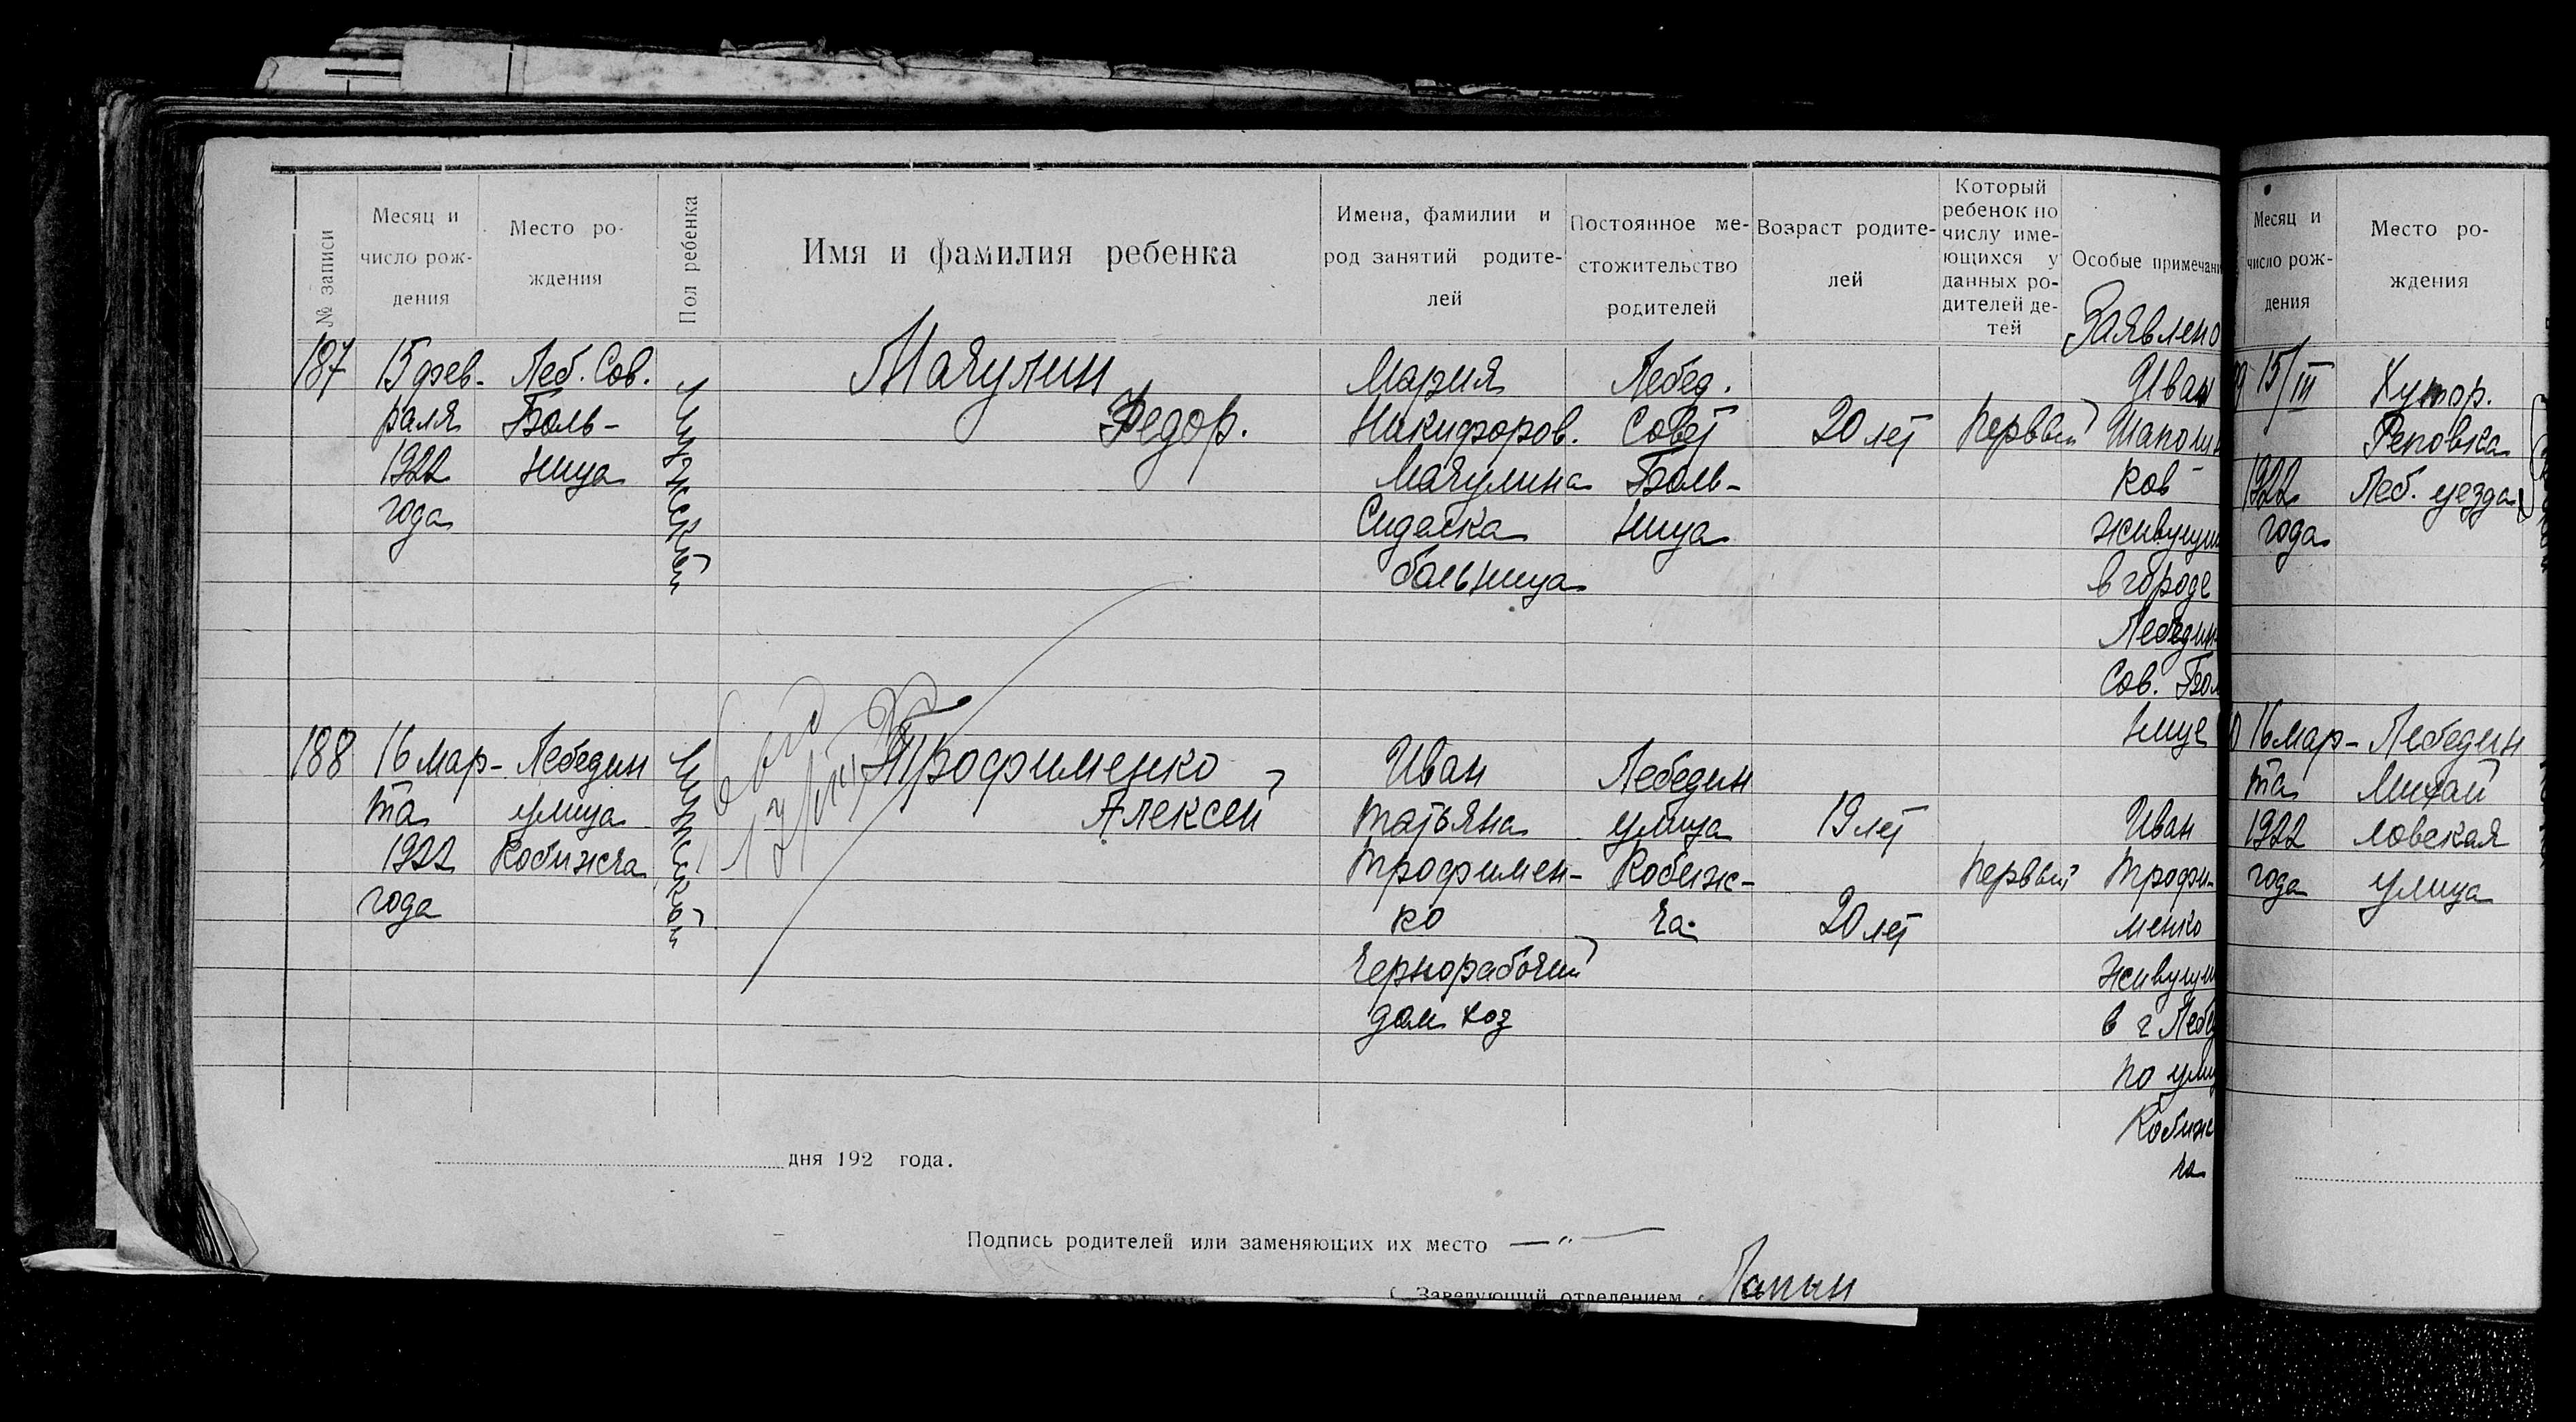 № записи
Месяц и число рождения
Место рождения
Пол ребенка
Имя и фамилия ребенка
Имена, фамилии и род занятий родителей
Постоянное местожительство родителей
Возраст родителей
Который ребенок по числу имеющихся у данных родителей детей
Особые примечани
187
15 фев-
раля
1922
года
Леб. Сов.
Боль-
ница
Мужской
Мачулин
Федор.
Мария
Никифоров.
Мачулина
Сиделка
больница
Лебед.
Совет
Боль-
ница
20 лет
Первый
Заявлено
Иван
Шаполи
ков
живущи
в городе
Лебедин
Сов. Бол
нице
188
16 мар-
та
1922
года
Лебедин
улица
Кобижча
Мужской
Трофименко
Алексей
Иван
Татьяна
Трофимен-
ко
Чернорабочий
дом хоз
Лебедин
улица
Кобиж-
ча
19 лет
20 лет
Первый
Иван
Трофи-
менко
живущи
в г Лебе
по ули
Кобиж
ча
дня 192 года.
Подпись родителей или заменяющих их место — " —
Заведующий отделением Лапин
Месяц и
число рож-
дения
Место ро-
ждения
15/III
1922
года
Хутор.
Реповка
Леб. уезда
16 мар-
та
1922
года
Лебедин
Михай
ловская
улица